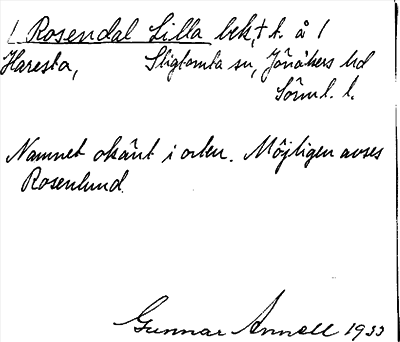 ( Rosendal Lilla bek, t. t. å )
Haresta, Sligtomta sn, Jönåkers hd
Sörml. l.
Namnet okänt i orten. Möjligen avses
Rosenlund.
Gunnar Annell 1933